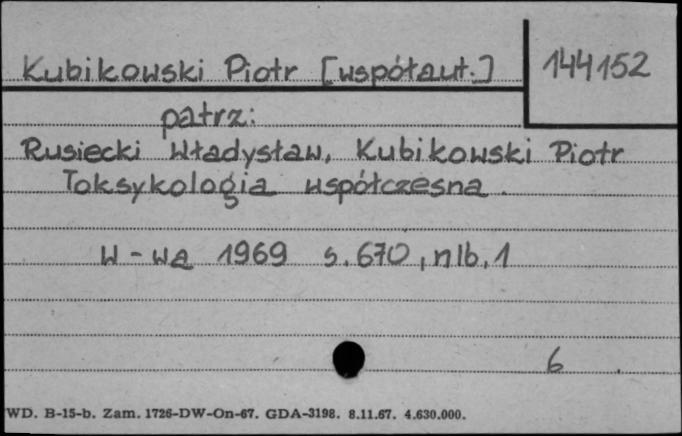 Kubikowski Piotr [współaut.] 144152
patrz:
Rusiecki Władysław, Kubikowski Piotr
Toksykologia współczesna.
W-wa 1969 s. 670, nlb. 1
6
WD. B-15-b. Zam. 1726-DW-On-67. GDA-3198. 8.11.67. 4.630.000.